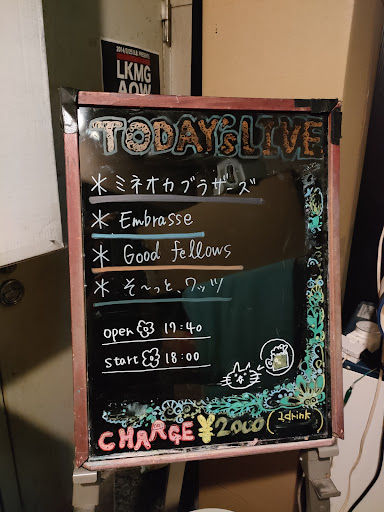 LKMG
AOW
TODAY'S LIVE
* ミネオカブラザーズ
* Embrasse
* Good fellows
* そ〜っと、ワッツ
open 17:40
start 18:00
CHARGE ¥2000 1drink